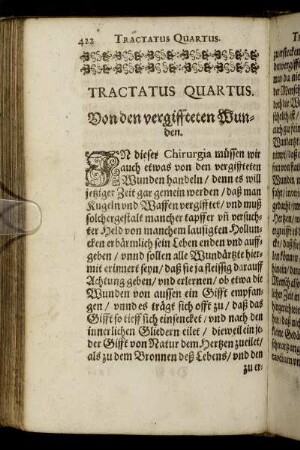 422 TRACTATUS QUARTUS.
TRACTATUS QUARTUS.
Von den vergiffteten Wun-
den.
IN dieser Chirurgia müssen wir
auch etwas von den vergiffteten
Wunden handeln / denn es will
jetziger Zeit gar gemein werden / daß man
Kugeln und Waffen vergifftet / und muß
solchergestalt mancher tapffer uñ versuch-
ter Held von manchem lausigten Hollun-
cken erbärmlich sein Leben enden und auff-
geben / unnd sollen alle Wundärtzte hier-
mit erinnert seyn / daß sie ja fleissig darauff
Achtung geben / und erlernen / ob etwa die
Wunden von aussen ein Gifft empfan-
gen / unnd es trägt sich offt zu / daß das
Gifft so tieff sich einsencket / und nach den
innerlichen Gliedern eilet / dieweil ein je-
der Gifft von Natur dem Hertzen zueilet /
als zu dem Bronnen deß Lebens / und den
zu er-